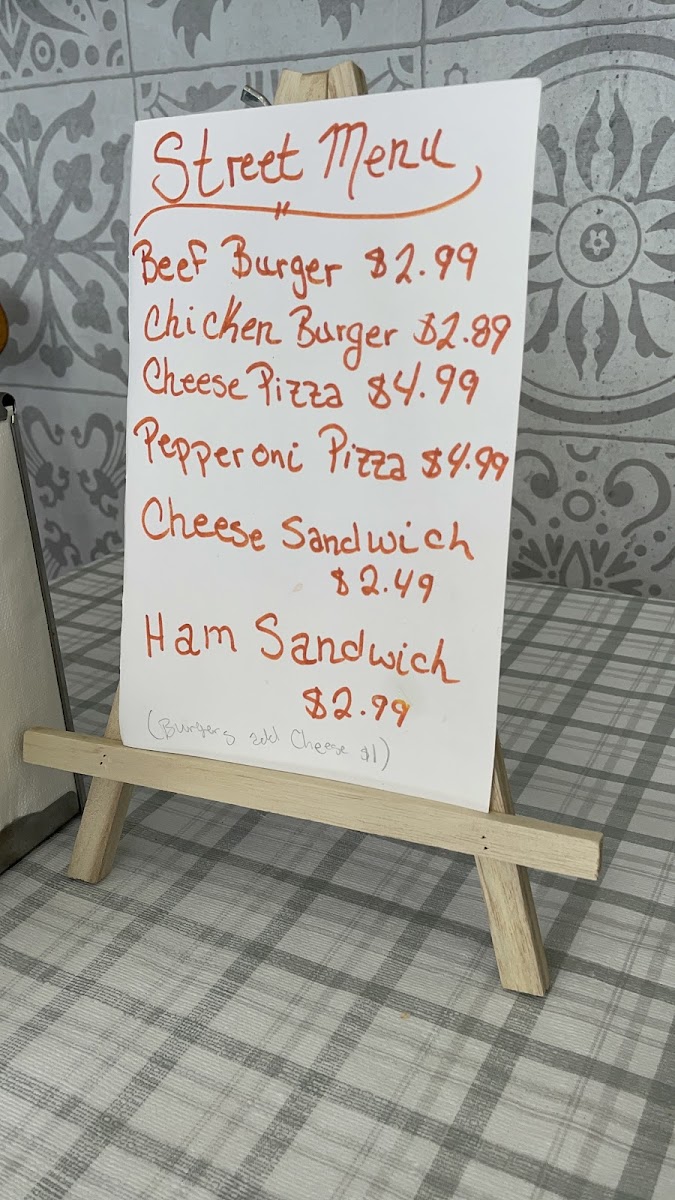 Street Menu
Beef Burger $2.99
Chicken Burger $2.89
Cheese Pizza $4.99
Pepperoni Pizza $4.99
Cheese Sandwich
$2.49
Ham Sandwich
$2.99
(Burgers add Cheese $1)